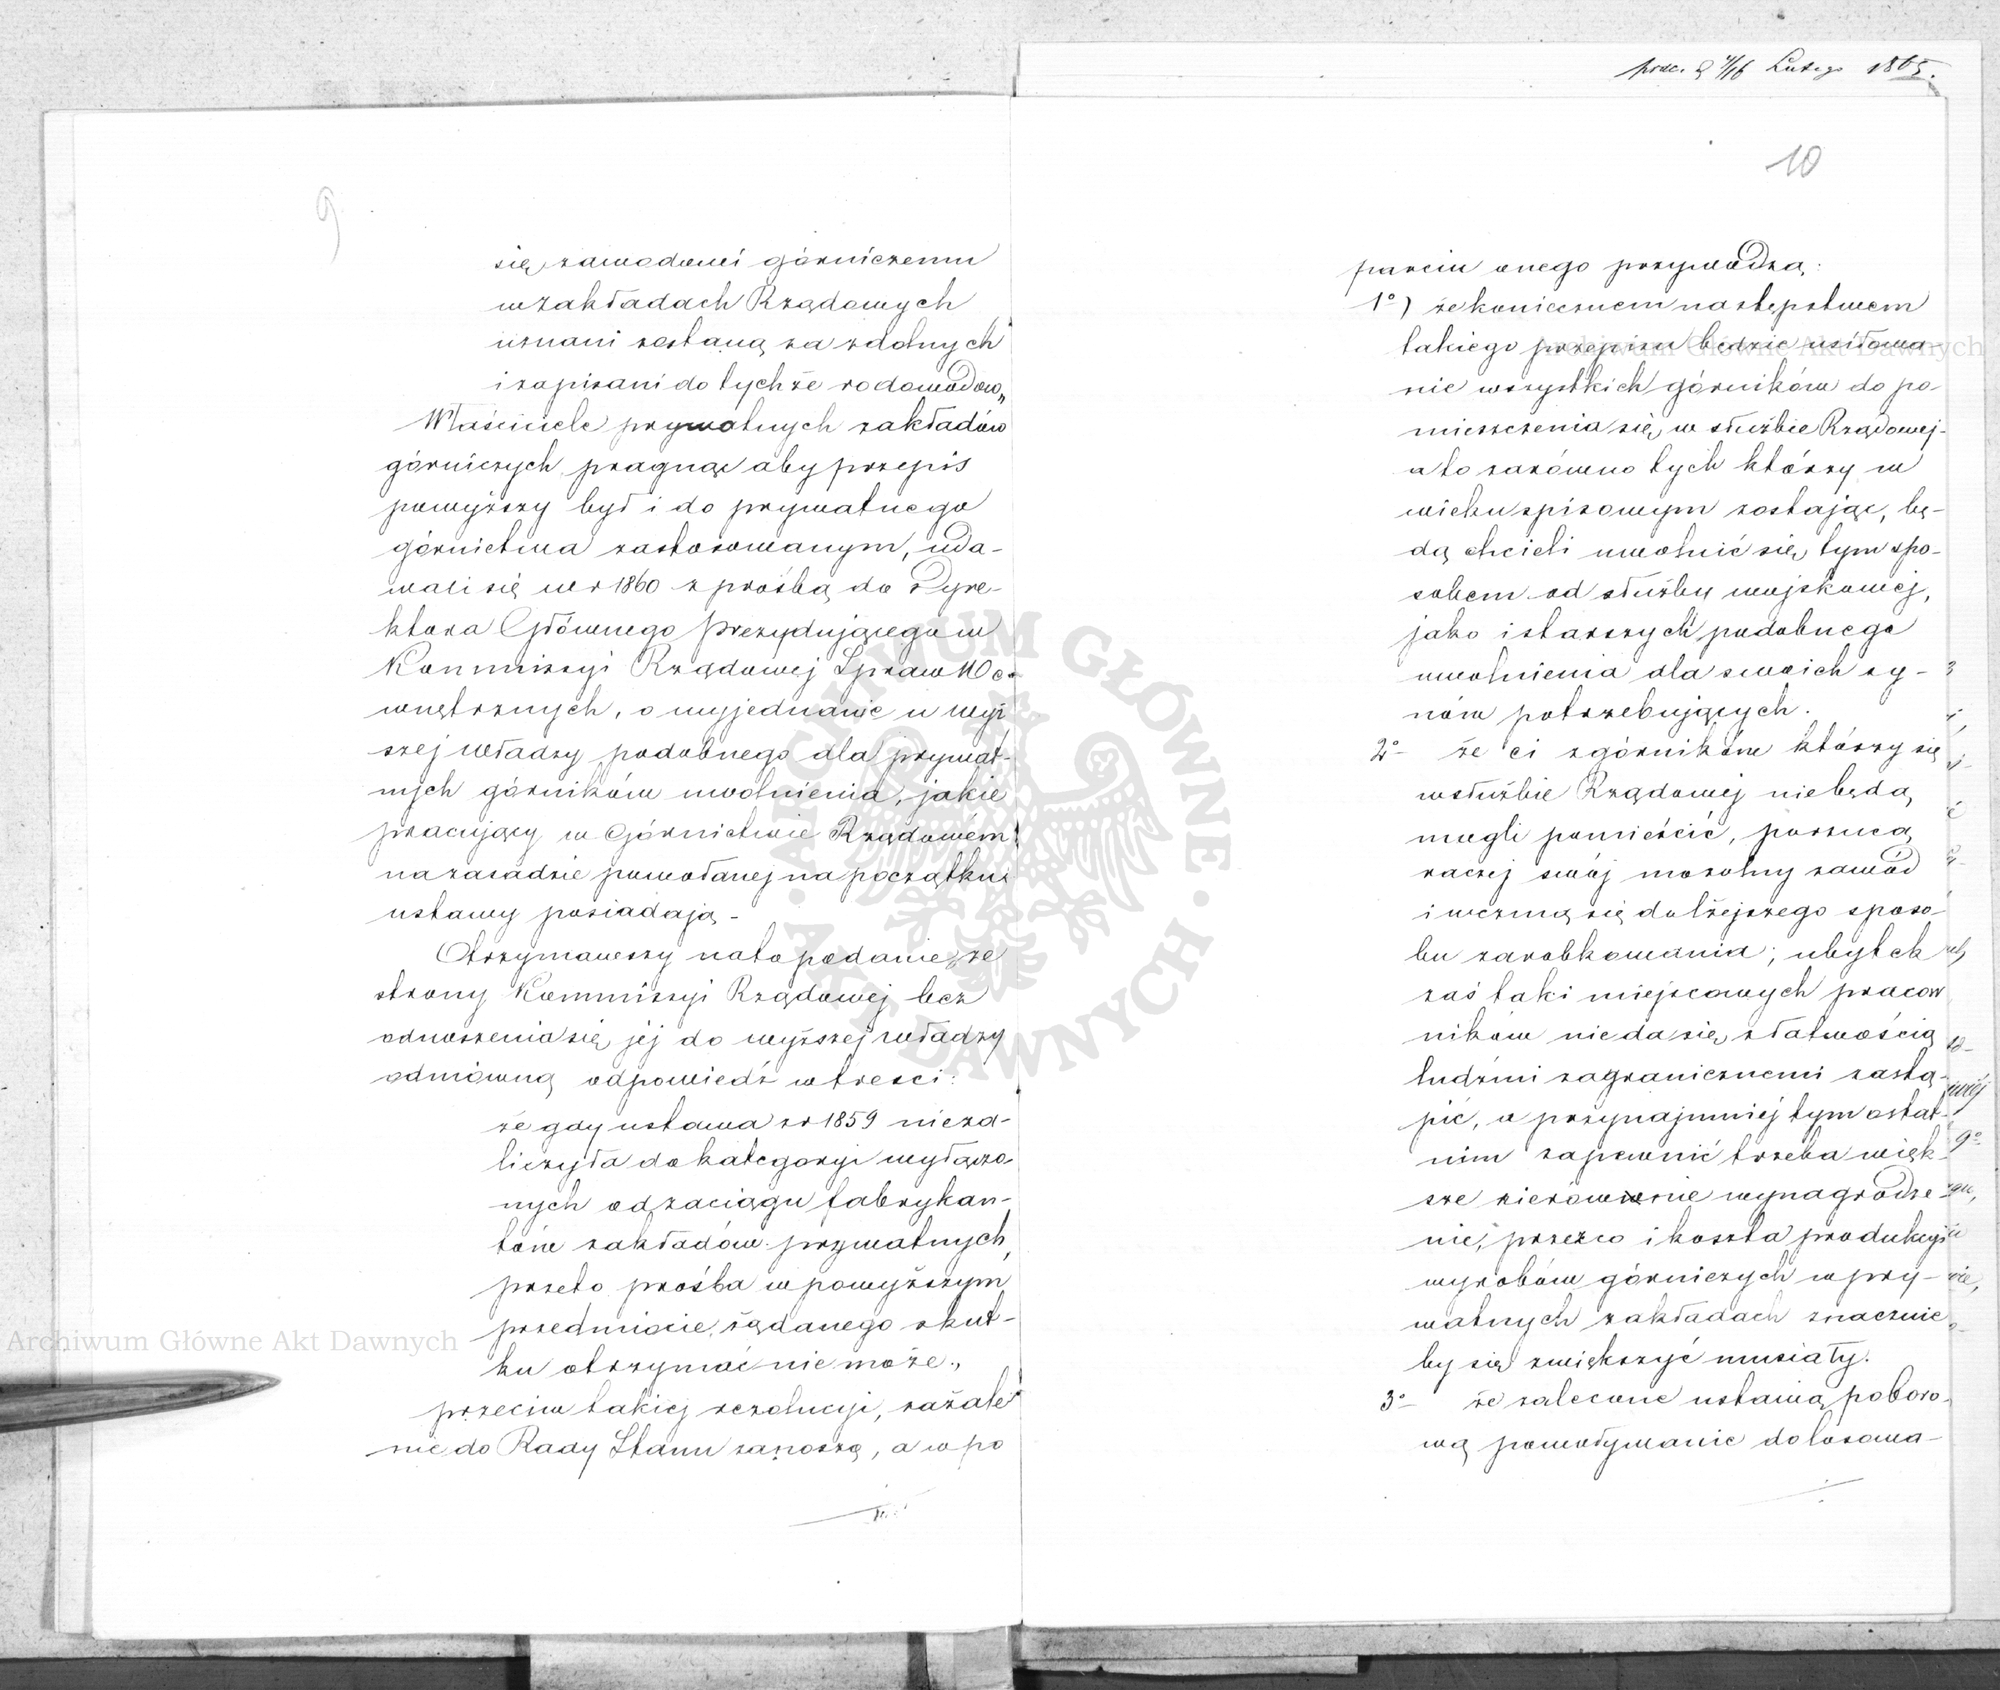 9
się zawodowi górniczemu
w zakładach Rządowych
uznani zostaną za zdolnych
i zapisani do tychże rodowodów„
Właściciele prywatnych zakładów
górniczych pragnąc aby przepis
powyższy był i do prywatnego
górnictwa zastosowanym, uda-
wali się w r 1860 z prośbą do Dyre-
ktora Głównego Prezydującego w
Kommissyi Rządowej Spraw We-
wnętrznych, o wyjednanie u wyż
szej władzy podobnego dla prywat-
nych górników uwolnienia, jakie
pracujący w Górnictwie Rządowém
na zasadzie powołanej na początku
ustawy posiadają -
Otrzymawszy na to podanie, ze
strony Kommissyi Rządowej bez
odnoszenia się jej do wyższej władzy
odmówną odpowiedź w treści:
że gdy ustawa z r 1859 nieza-
liczyła do kategoryi wyłączo
nych od zaciągu fabrykan-
tów zakładów prywatnych,
przeto prośba w powyższym
przedmiocie, żądanego skut-
ku otrzymać nie może„
przeciw takiej rezolucyi, zażale
nie do Rady Stanu zanoszą, a w po
prez. d 4/16 Lutego 1865.
10
parciu onego przywodzą:
1º) że koniecznem następstwem
takiego przepisu będzie usiłowa-
nie wszystkich górników do po-
mieszczenia się w służbie Rządowej-
a to zarówno tych którzy w
wieku spisowym zostając, bę-
dą chcieli uwolnić się tym spo-
sobem od służby wojskowej,
jako i starszych podobnego
uwolnienia dla swoich sy-
nów potrzebujących.
2º- że ci z górników którzy się
w służbie Rządowej niebędą
mogli pomieścić, porzucą
raczej swój mozolny zawód
i wezmą się do lżejszego sposo-
bu zarobkowania; ubytek
zaś taki miejscowych pracow
ników nie da się z łatwością
ludźmi zagranicznemi zastą-
pić, a przynajmniej tym ostat-
nim zapewnić trzeba więk
sze nierównie wynagrodze
nie, przezco i koszta produkcyi
wyrobów górniczych w pry-
watnych zakładach znacznie
by się zwiększyć musiały.
3º- że zalecone ustawą poboro-
wą powoływanie do losowa-
Archiwum Główne Akt Dawnych
Archiwum Główne Akt Dawnych
ARCHIWUM GŁÓWNE
AKT DAWNYCH